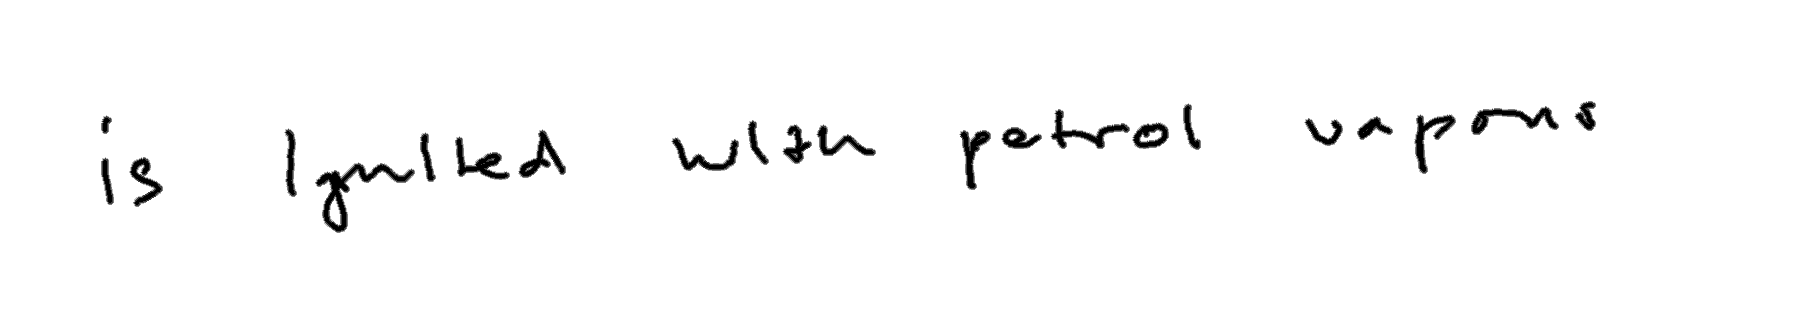 is ignited with petrol vapors